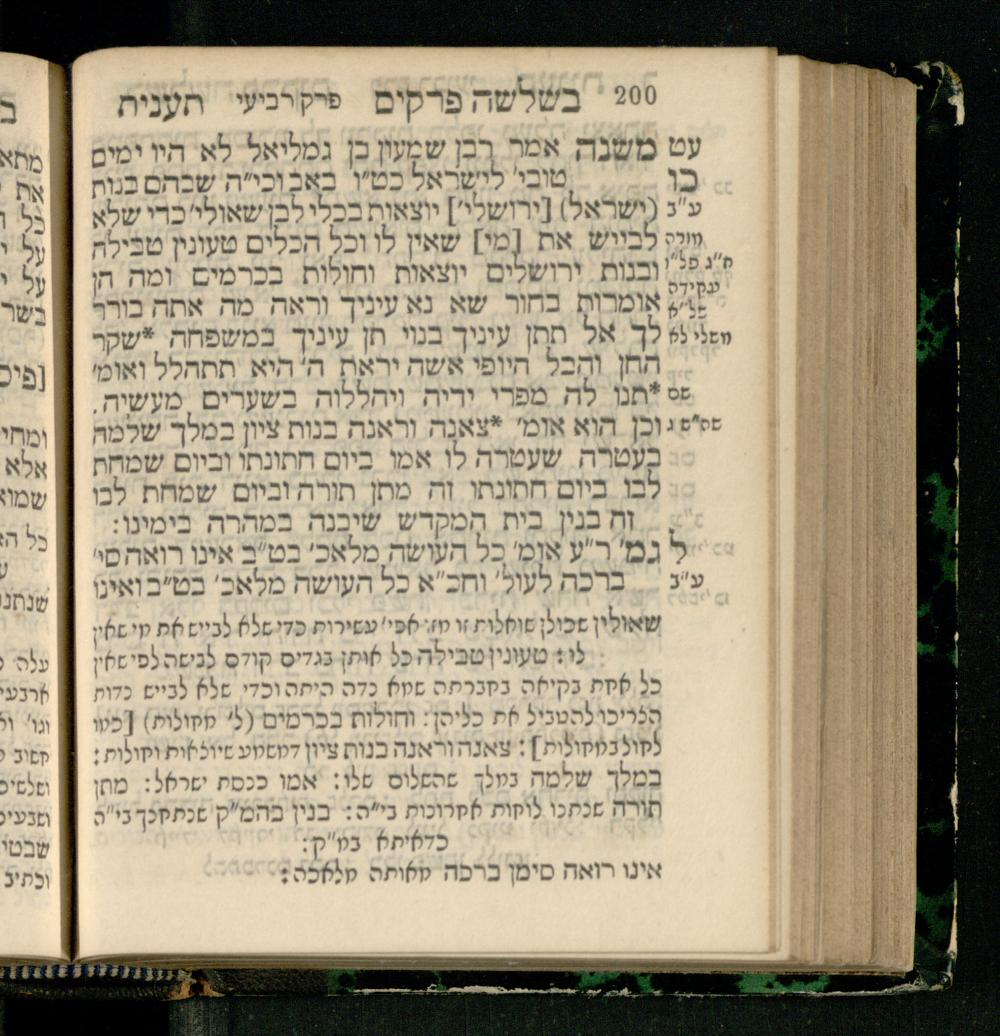 200 בשלשה פרקים פרק רביעי תענית
עט משנה אמר רבן שמעון בן גמליאל לא היו ימים
כו טובי' לישראל כט"ו באב וכי"ה שבהם בנות
ע"ב (ישראל) [ירושלי'] יוצאות בכלי לבן שאולי' כדי שלא
מזרה לבייש את [מי] שאין לו וכל הכלים טעונין טבילה
ח"ג פל"ו ובנות ירושלים יוצאות וחולות בכרמים ומה הן
עקידה
של"א אומרות בחור שא נא עיניך וראה מה אתה בורר
משלי לא לך אל תתן עיניך בנוי תן עיניך במשפחה *שקר
החן והבל היופי אשה יראת ה' היא תתהלל ואומ'
שם *תנו לה מפרי ידיה ויהללוה בשערים מעשיה.
שה"ש ג וכן הוא אומ' *צאנה וראנה בנות ציון במלך שלמה
בעטרה שעטרה לו אמו ביום חתונתו וביום שמחת
לבו ביום חתונתו זה מתן תורה וביום שמחת לבו
זה בנין בית המקדש שיבנה במהרה בימינו:
ל גמ' ר"ע אומ' כל העושה מלאכ' בט"ב אינו רואה סי'
ע"ב ברכה לעול' וחכ"א כל העושה מלאכ' בט"ב ואינו
שאולין שכולן שואלות זו מזו אפי' עשירות כדי שלא לבייש את מי שאין
לו: טעונין טבילה כל אותן בגדים קודם לבישה לפי שאין
כל אחת בקיאה בחברתה שמא נדה היתה וכדי שלא לבייש נדות
הצריכו להטביל את כליהן: וחולות בכרמים (ל' מחולות) [כמו
לחול במחולות]: צאנה וראנה בנות ציון דמשמע שיוצאות וחולות:
במלך שלמה במלך שהשלום שלו: אמו כנסת ישראל: מתן
תורה שנתנו לוחות אחרונות בי"ה: בנין בהמ"ק שנתחנך בי"ה
כדאיתא במ"ק:
אינו רואה סימן ברכה מאותה מלאכה: